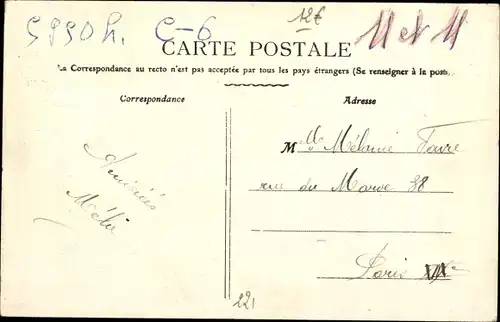 5990h. C-6 12€
CARTE POSTALE
La Correspondance au recto n'est pas acceptée par tous les pays étrangers (Se renseigner à la poste)
Correspondance
Adresse
Amitiés
M Mélanie Favre
rue du 38
Paris
221